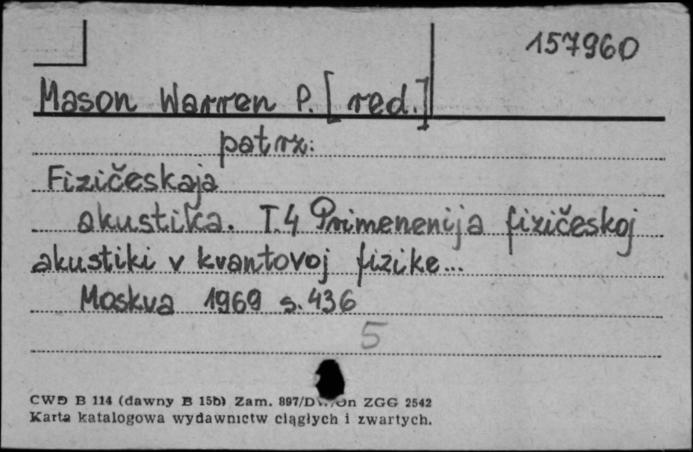 157960
Mason Warren P. [red.]
patrz:
Fizičeskaja
akustika. T.4 Primenenija fizičeskoj
akustiki v kvantovoj fizike...
Moskva 1969 s. 436
5
CWD B 114 (dawny B 15b) Zam. 897/D ZGG 2542
Karta katalogowa wydawnictw ciągłych i zwartych.